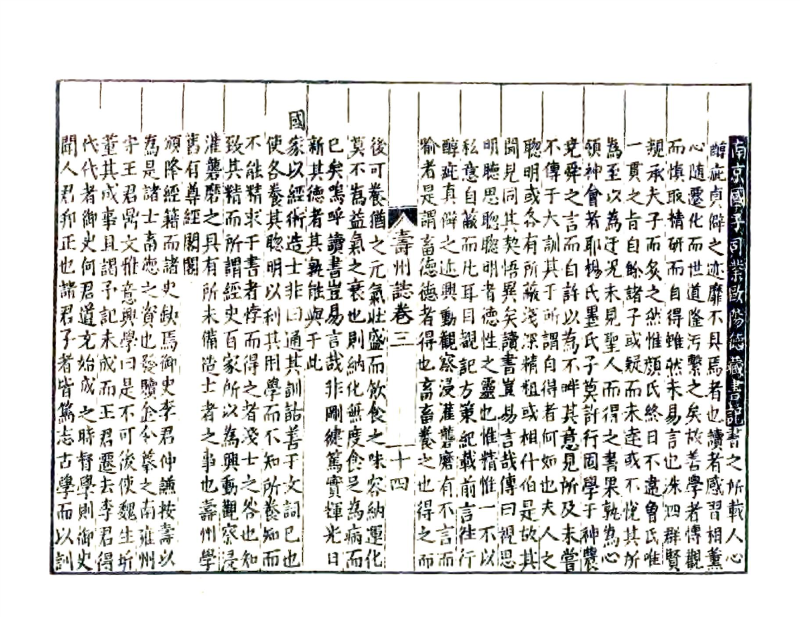 南京國子司業歐陽德藏書記書之所載人心
醇疵貞僻之迹靡不具焉者也讀者感習相薰
心隨遷化而世道隆污繫之矣故善學者慱觀
而慎取精研而自得雖然未易言也洙四群賢
親承夫子而炙之然惟顏氏終日不違魯氏唯
一貫之旨自餘諸子或疑而未達或不悅其所
為至以為迂況未見聖人而得之書果孰為心
領神會者耶楊氏墨氏子莫許行固學于神農
堯舜之言而自許以為不畔其意見所及未嘗
不傳于大訓其于所謂自得者何如也夫人之
聰明或各有所蔽淺深精粗或相什伯是故其
聞見同其契悟異矣讀書豈易言哉傳曰視思
明聽思聰聰明者德性之靈也惟精惟一不以
私意自蔽而凡耳目觀記方策紀載前言往行
醇疵貞僻之迹興動觀察浸灌礱磨有不言而
喻者是謂畜德德者得也畜畜養之也得之而
壽州誌卷三 二十四
後可養猶之元氣壯盛而飲食之味容納運化
莫不為益氣之衰也則納化無度食足為病而
已矣嗚呼讀書豈易言哉非剛健篤實輝光日
新其德者其孰能與于此
國家以經術造士非曰通其訓詁善于文詞已也
使各養其聰明以利其用學而不知所養知而
不能精求于書者悖而得之者淺士之咎也知
致其精而所謂經史百家所以為興動觀察浸
灌礱磨之具有所未備造士者之事也壽州學
舊有尊經閣閣
頒降經籍而諸史缺焉御史李君仲謙按壽以
為是諸士畜德之資也發贖金令摹之南雍州
守王君鼎文雅意興學曰是不可後使魏生圻
董其成事且謁予記未成而王君遷去李君得
代代者御史何君道充始成之時督學則御史
聞人君邦正也諸君子者皆篤志古學而以訓